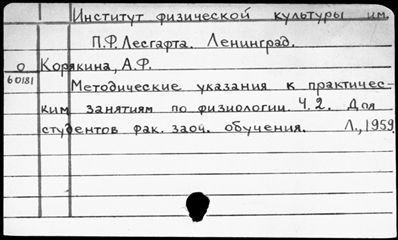 Институт физической культуры им.
П.Ф. Лесгафта. Ленинград.
О Корякина, А.Ф.
60181
Методические указания к практичес-
ким занятиям по физиологии. Ч. 2. Для
студентов фак. заоч. обучения. Л., 1959